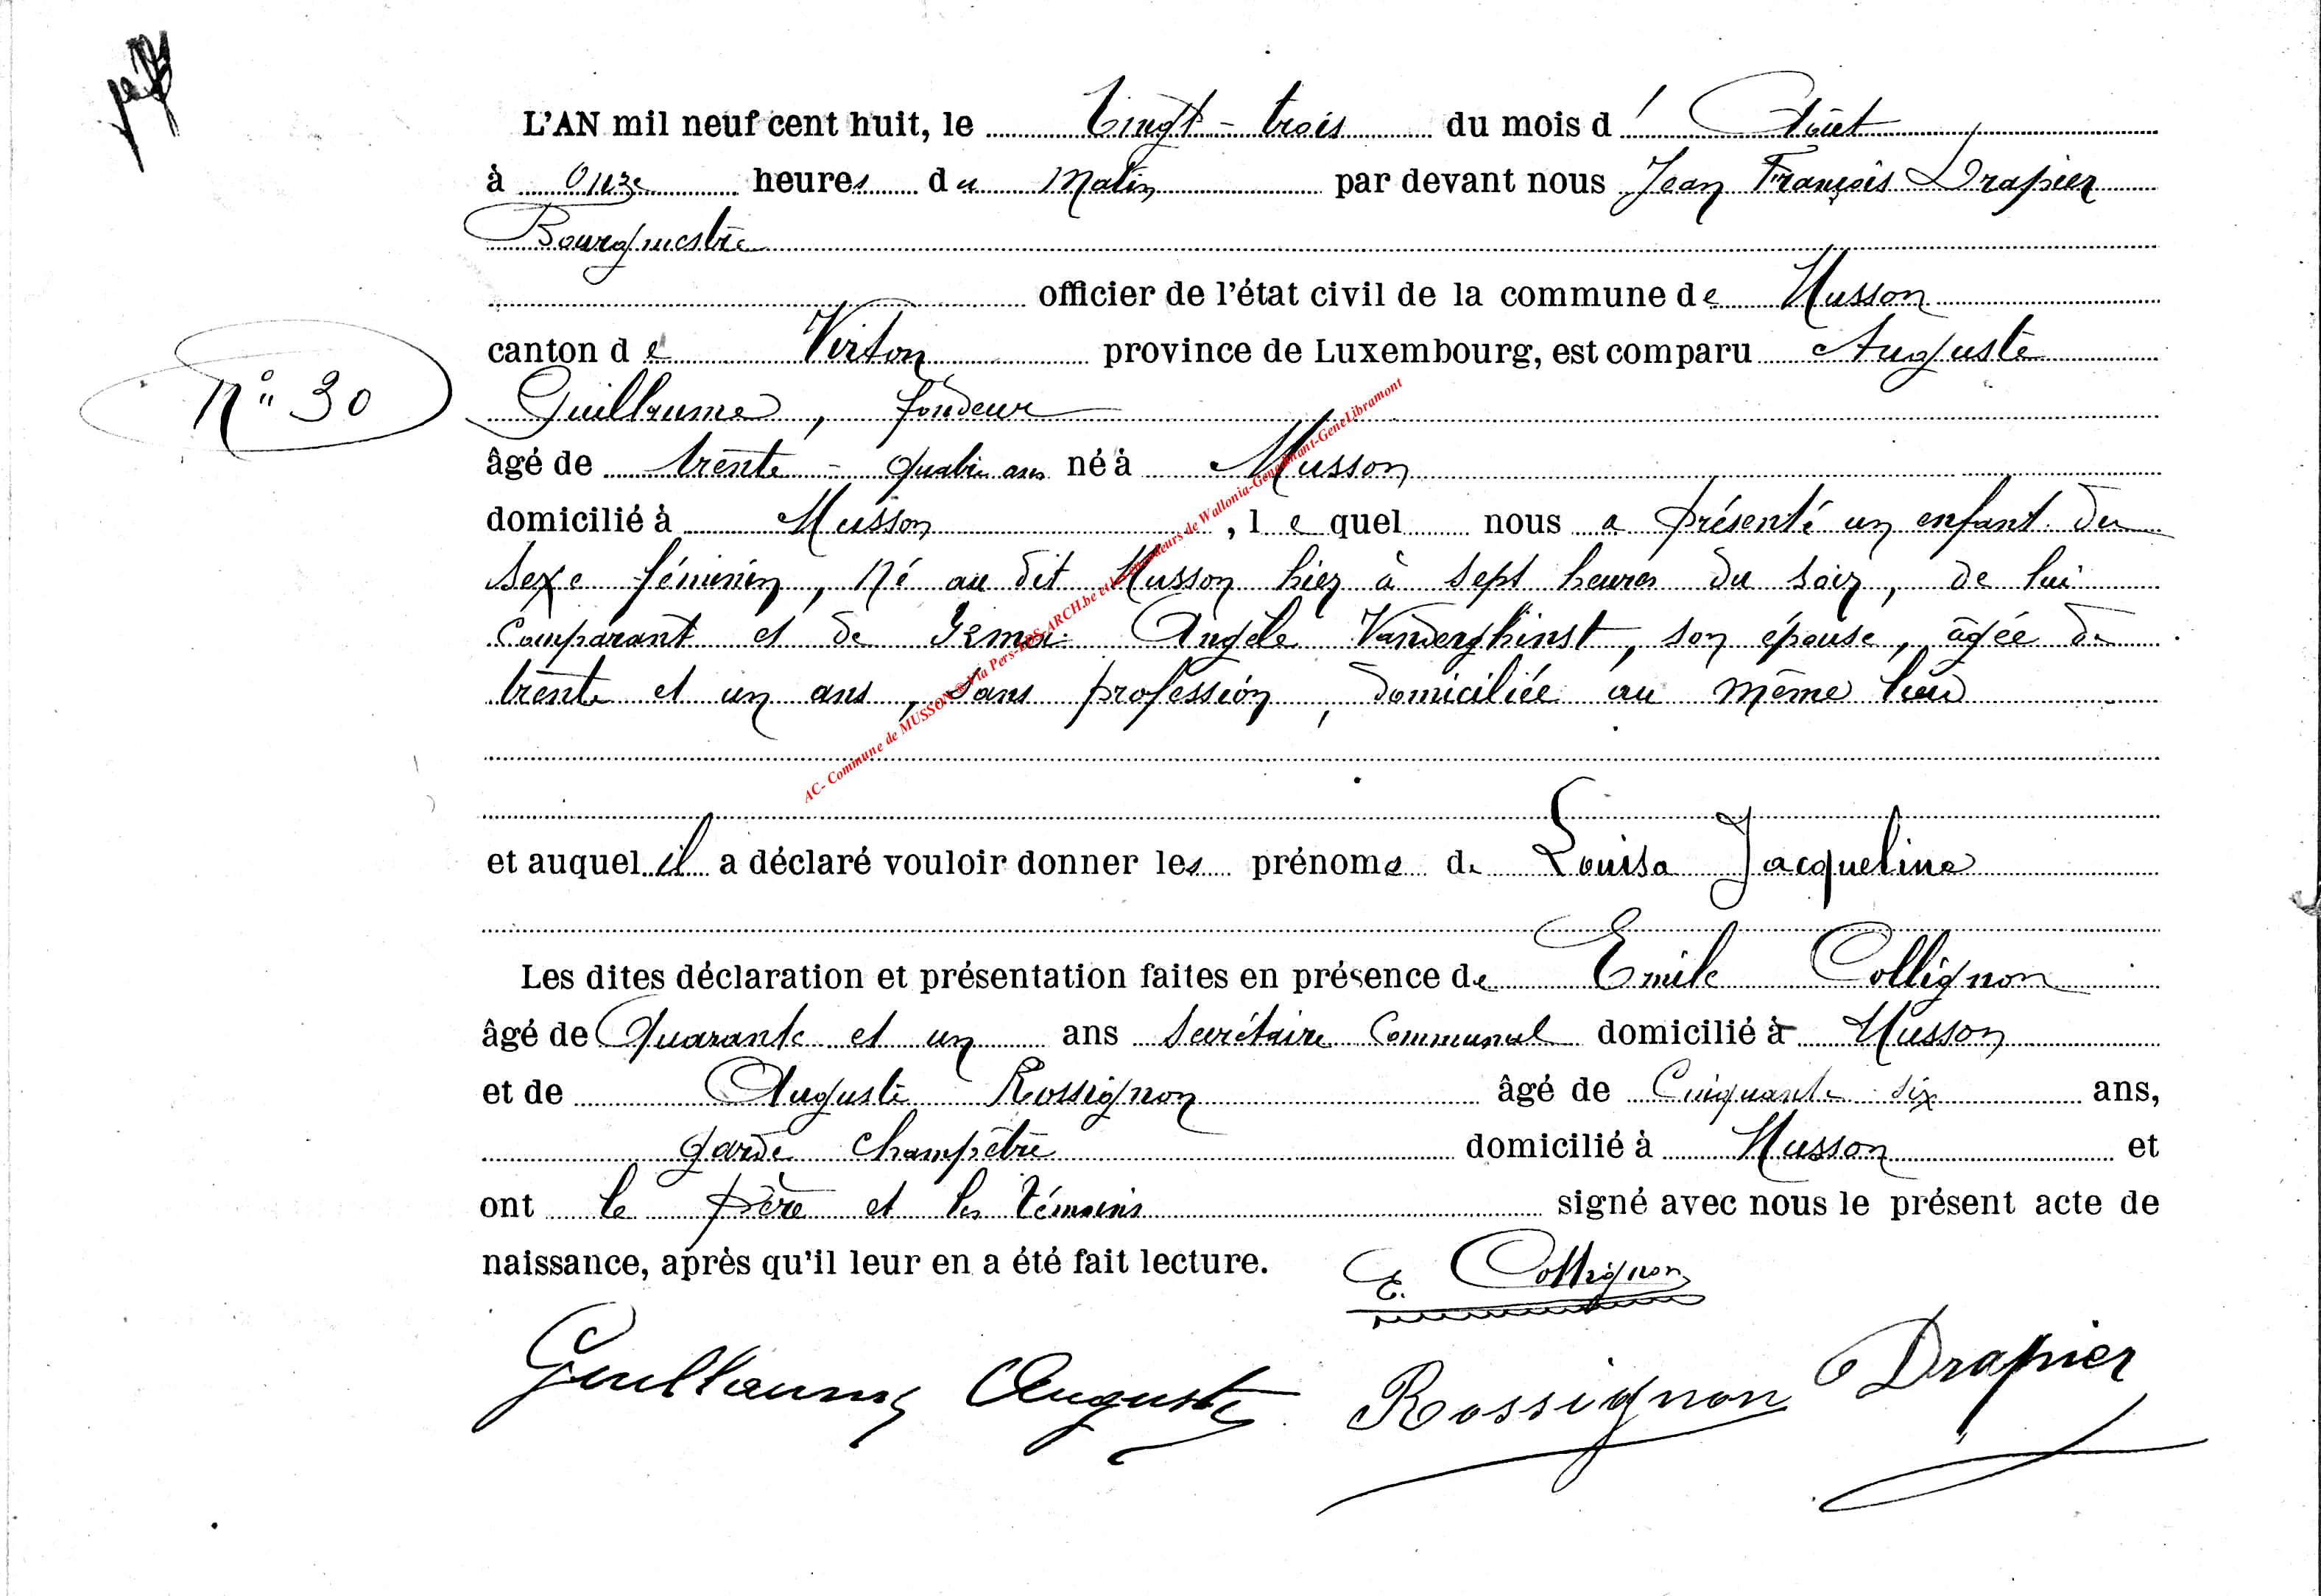 L'AN mil neuf cent huit, le Vingt-trois du mois d' Août
à onze heures du Matin par devant nous Jean François Drapier
Bourgmestre
officier de l'état civil de la commune de Musson
canton de Virton province de Luxembourg, est comparu Auguste
N° 30 Guillaume, fondeur
âgé de trente-quatre ans né à Musson
domicilié à Musson, lequel nous a présenté un enfant du
sexe féminin, né au dit Musson hier à sept heures du soir, de lui
Comparant et de Angèle Vanderghinst, son épouse, âgée de
trente et un ans, sans profession, domiciliée au même lieu
AC- Commune de MUSSON ® Via Pers-EDS-ARCH.be et les encodeurs de Wallonia-GeneDinant-GeneLibramont
et auquel il a déclaré vouloir donner les prénoms de Louisa Jacqueline
Les dites déclaration et présentation faites en présence de Emile Collignon
âgé de Quarante et un ans secrétaire Communal domicilié à Musson
et de Auguste Rossignon âgé de Cinquante six ans,
garde champêtre domicilié à Musson et
ont le père et les témoins signé avec nous le présent acte de
naissance, après qu'il leur en a été fait lecture.
E. Collignon
Guillaume Auguste Rossignon Drapier